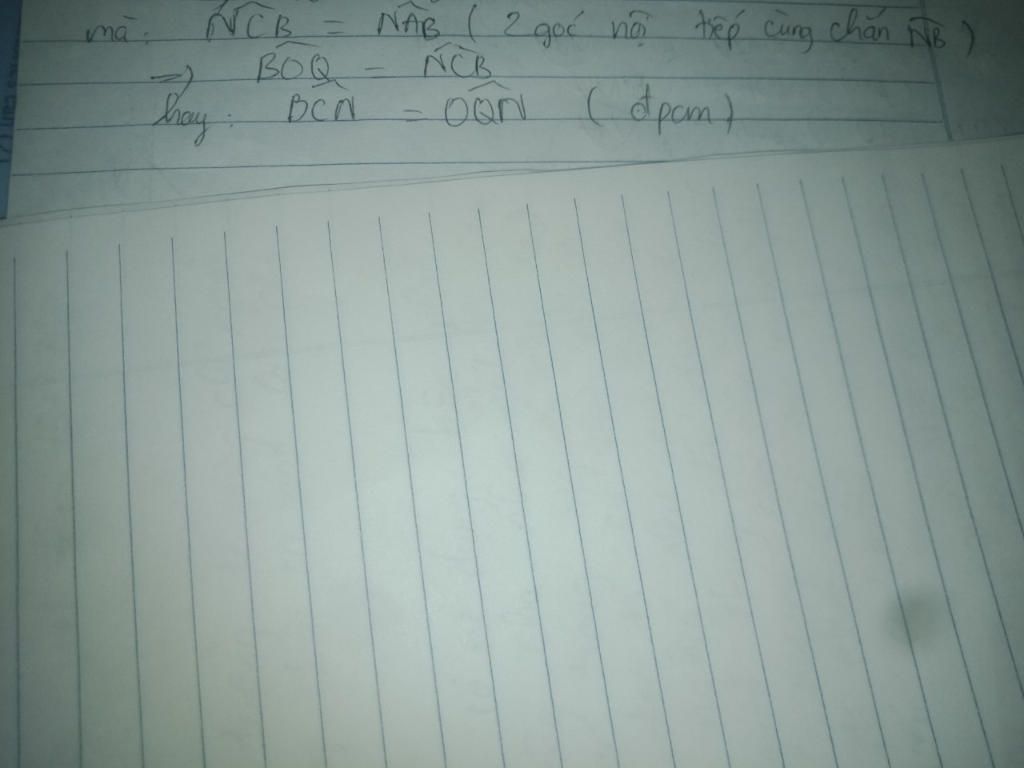 mà: N̂CB = NÂB ( 2 góc nội tiếp cùng chắn N͡B )
=> BÔQ = NĈB
hay: BĈN = OQ̂N ( đpcm )